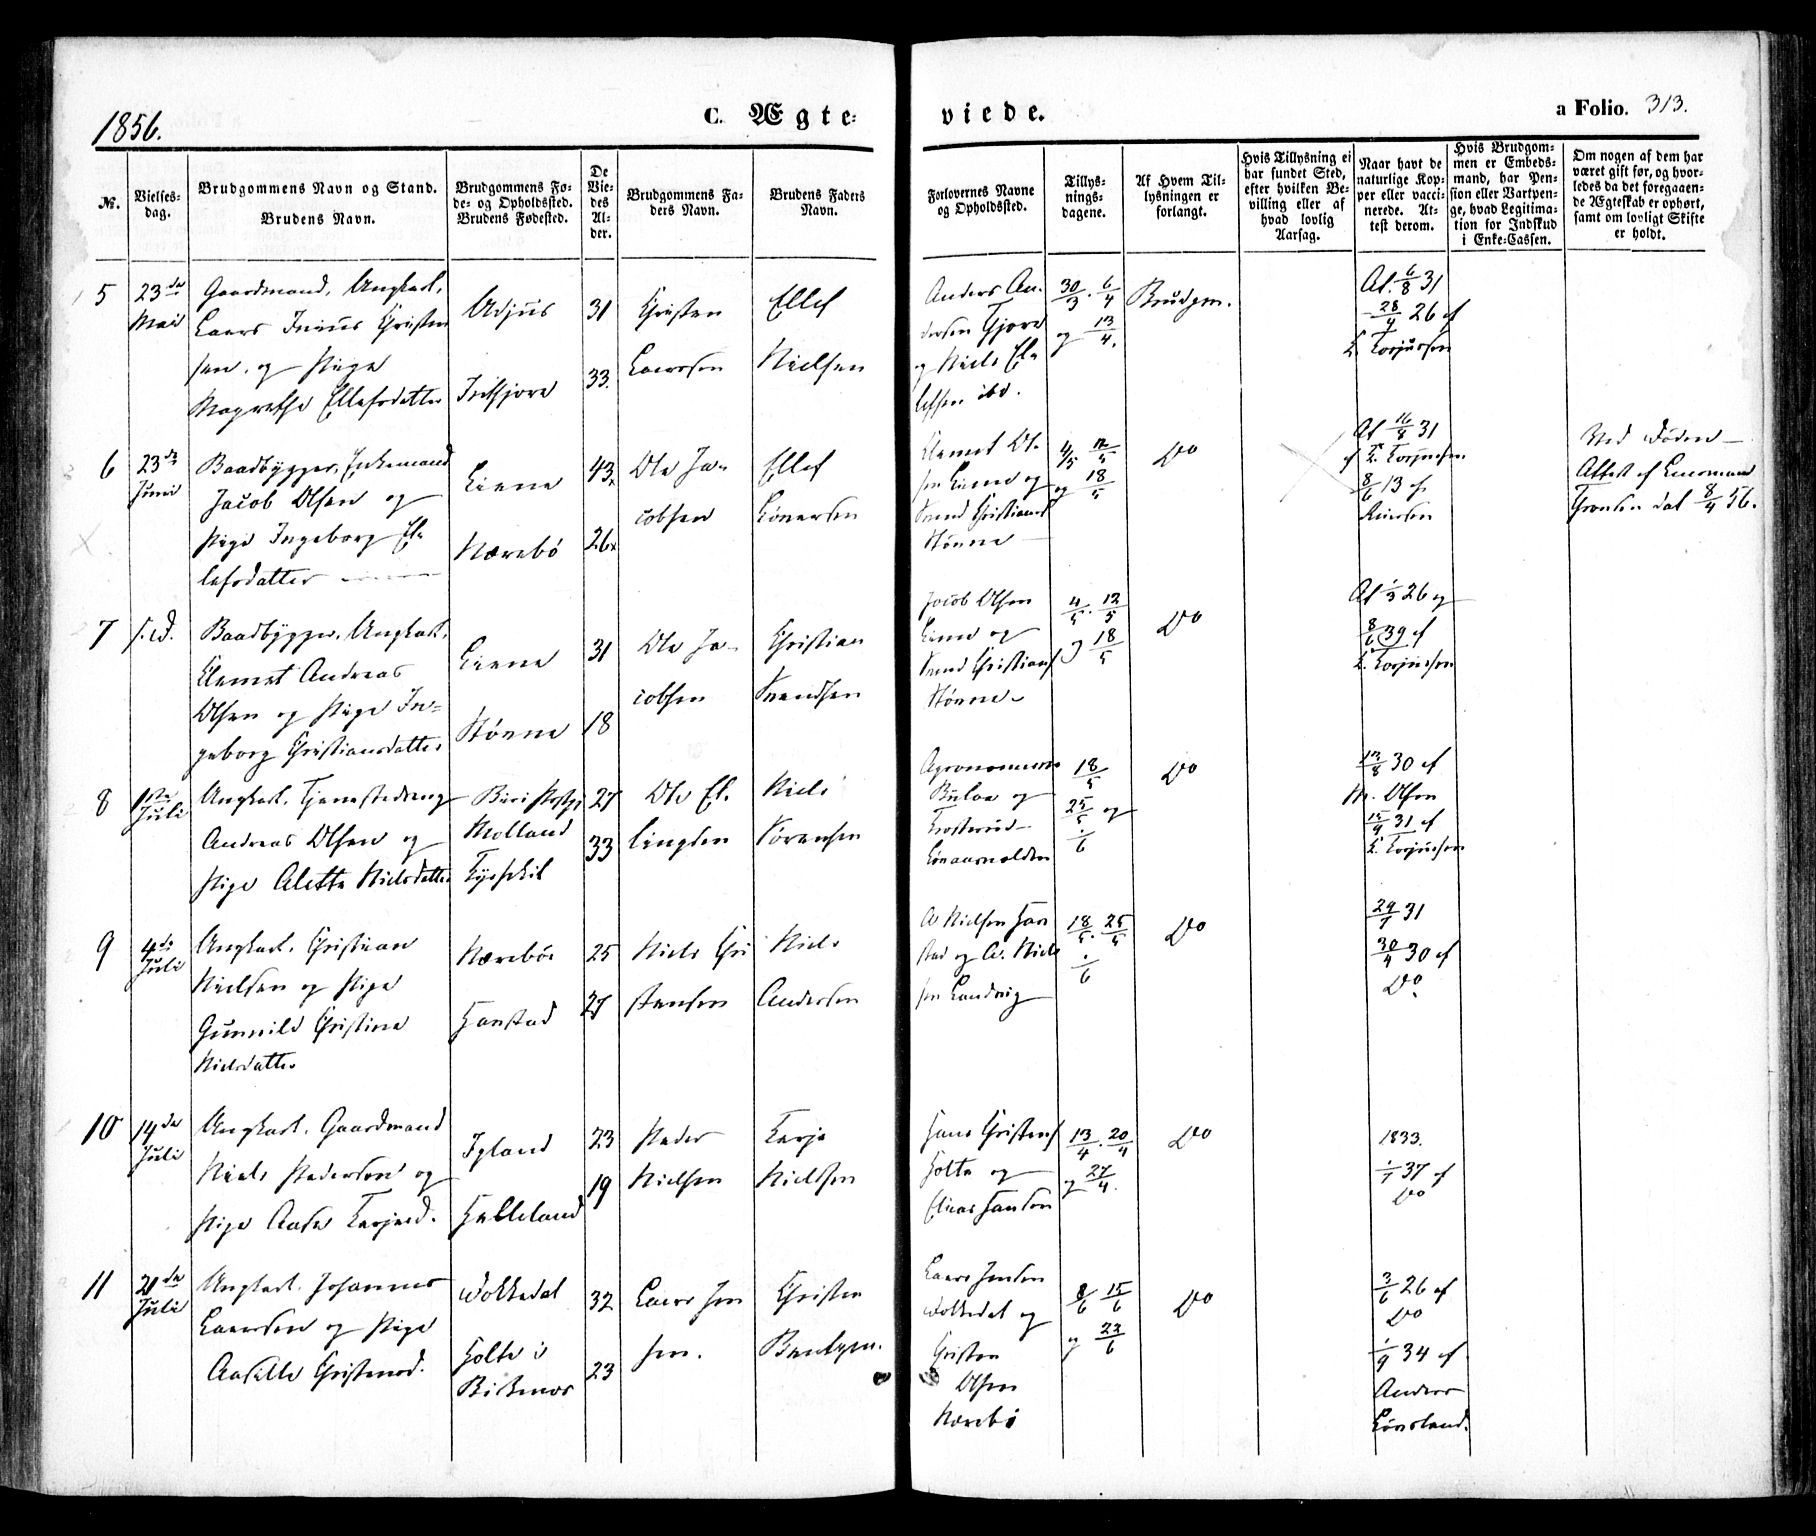 1856.
C. Ægte-
viede.
a Folio. 313.
№.
Vielses-
dag.
Brudgommens Navn og Stand.
Brudens Navn.
Brudgommens Fø-
de- og Opholdssted.
Brudens Fødested.
De
Vie-
des
Al-
der.
Brudgommens Fa-
ders Navn.
Brudens Faders
Navn.
Forlovernes Navne
og Opholdssted.
Tillys-
nings-
dagene.
Af Hvem Til-
lysningen er
forlangt.
Hvis Tillysning ei
har fundet Sted,
efter hvilken Be-
villing eller af
hvad lovlig
Aarsag.
Naar havt de
naturlige Kop-
per eller vacci-
nerede. At-
test derom.
Hvis Brudgom-
men er Embeds-
mand, har Pen-
sion eller Vartpen-
ge, hvad Legitima-
tion for Indskud
i Enke-Cassen.
Om nogen af dem har
været gift før, og hvor-
ledes da det foregaaen-
de Ægteskab er ophørt,
samt om lovligt Skifte
er holdt.
5
23de
Mai
Gaardmand, Ungkarl,
Laers Christen
sen, og Pige
Magrethe Ellefsdatter
31
33.
Christen
Laerssen
Ellef
Nielsen
Anders An-
dersen
og Niels El-
lefsen ibd.
30/3. 6/4
og 13/4.
Brudgm.
Af. 6/8 31
28/4 26 af
L. Torjussen
6
23de
Juni
Baadbygger, Enkemand
Jacob Olsen og
Pige Ingeborg El-
lefsdatter
Liene
Nærebö
43
26
Ole Ja-
cobsen
Ellef
Clemet Ol-
sen Liene og
Svend Christians
Stönne
4/5 12/5
og 18/5
Do
Af 16/8 31
af L. Torjussen
8/6 13 af
Ved Döden
Attest af
dat 8/4 56.
7
s.D.
Baadbygger, Ungkarl,
Clemet Andreas
Olsen og Pige In-
geborg Christiansdatter
Liene
Stönne
31
18
Ole Ja-
cobsen
Christian
Svendsen
Jacob Olsen
Liene og
Svend Christians
Stönne
4/5. 12/5
18/5
Do
Af 1/3 26 og
8/6 39 af
L. Torjussen
8
1ste
Juli
Ungkarl, Tjenestedreng
Andreas Olsen og
Pige Alette Nielsdatter
Molland
27
33
Ole El-
lingsen
Niels
Sörensen
og
18/5
25/5 og
1/6
Do
12/8 30 af
M. Olsen
15/9 31 af
L. Torjussen
9
4de
Juli
Ungkarl, Christian
Nielsen og Pige
Gunnild Christine
Nielsdatter
Nærebö
Hanstad
25
27
Niels Chri
stensen
Niels
Andersen
A Nielsen Han
stad og A. Niel
sen Landvig
18/5. 25/5
1/6
Do
29/7 31
30/4 30 af
Do
10
14de
Juli
Ungkarl, Gaardmand
Niels Pedersen og
Pige Aase Terjesd.
Igland
Helleland
23
19
Peder
Nielsen
Terje
Nielsen
Hans Christens
Holte og
Elias Hansen
13/4. 20/4
27/4.
Do
1833.
1/7 37 af
Do
11
21de
Juli
Ungkarl, Johannes
Laerssen og Pige
Christensd.
Dokkedal
Holte i
32
23
Laers Jen
sen.
Christen
Laers Jensen
Dokkedal og
Christen
Olsen
Nærebö
8/6 15/6
og 22/6
Do
3/6 26 af
Do
1/9 34 af
Anders